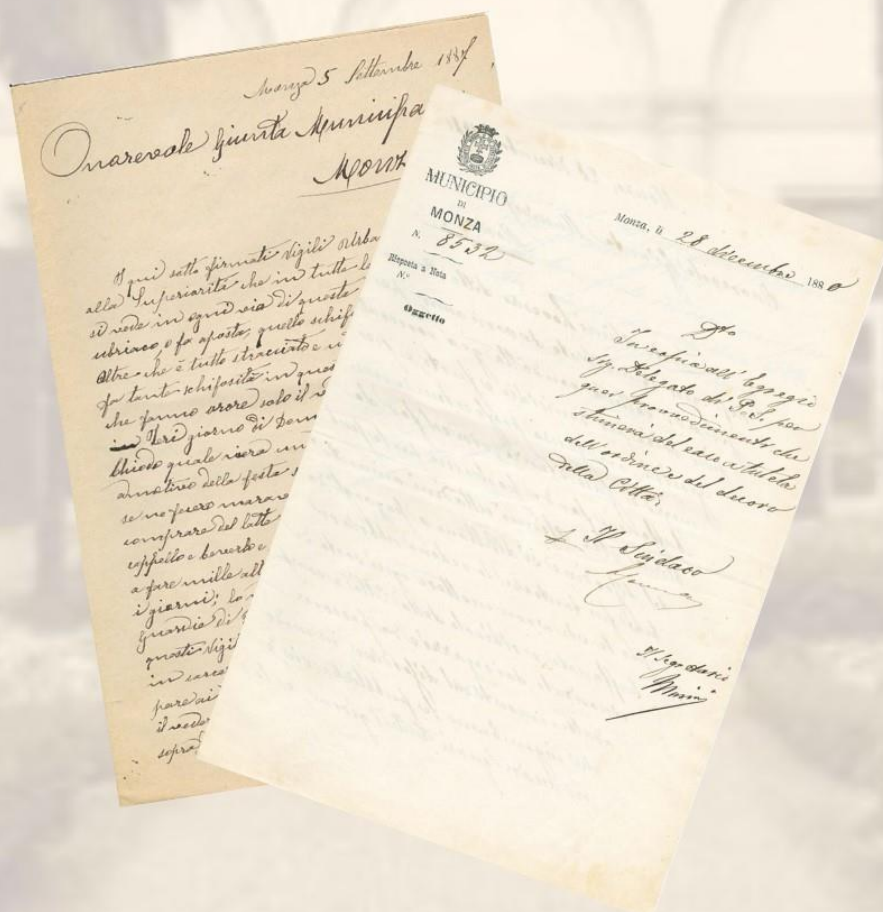 Monza 5 Settembre 1887
Onorevole Giunta Municipa
Monz
I qui sotto firmati Vigili Urba
alla Superiorità che in tutte le
si vede in ogni via di questa
ubriaco, o fa aposta, quello schif
Oltre che è tutto stracciato e u
fa tante schifosità in ques
che fanno orore solo il
Ieri giorno di Dom
Chiodo quale viera un
amotivo della festa s
se ne fecero
comprare del latte
cappello e beverlo e
a fare mille alt
i giorni; lo
Guardie di
questi Vigil
in carce
pare ai
il veder
sopra
MUNICIPIO
DI
MONZA
N. 8532
Risposta a Nota
N.°
Oggetto
Monza, li 28 dicembre 1880
In copia all' Egregio
Sig. Delegato di P.S. per
quei provvedimenti che
stimerà del caso a tutela
dell'ordine e del decoro
della Città.
Il Sindaco
Il Segretario